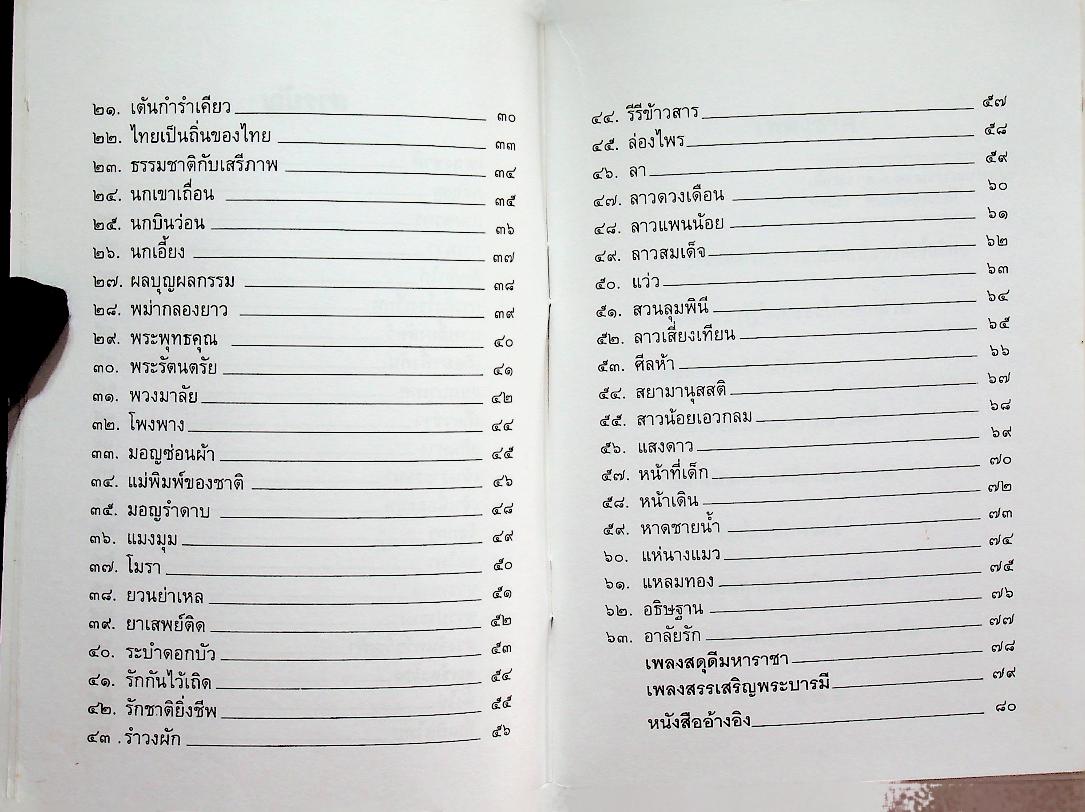 ๒๑. เต้นกำรำเคียว ๓๐
๒๒. ไทยเป็นถิ่นของไทย ๓๓
๒๓. ธรรมชาติกับเสรีภาพ ๓๔
๒๔. นกเขาเถื่อน ๓๕
๒๕. นกบินว่อน ๓๖
๒๖. นกเอี้ยง ๓๗
๒๗. ผลบุญผลกรรม ๓๘
๒๘. พม่ากลองยาว ๓๙
๒๙. พระพุทธคุณ ๔๐
๓๐. พระรัตนตรัย ๔๑
๓๑. พวงมาลัย ๔๒
๓๒. โพงพาง ๔๔
๓๓. มอญซ่อนผ้า ๔๕
๓๔. แม่พิมพ์ของชาติ ๔๖
๓๕. มอญรำดาบ ๔๘
๓๖. แมงมุม ๔๙
๓๗. โมรา ๕๐
๓๘. ยวนย่าเหล ๕๑
๓๙. ยาเสพย์ติด ๕๒
๔๐. ระบำดอกบัว ๕๓
๔๑. รักกันไว้เถิด ๕๔
๔๒. รักชาติยิ่งชีพ ๕๕
๔๓ .รำวงผัก ๕๖
๔๔. รีรีข้าวสาร ๕๗
๔๕. ล่องไพร ๕๘
๔๖. ลา ๕๙
๔๗. ลาวดวงเดือน ๖๐
๔๘. ลาวแพนน้อย ๖๑
๔๙. ลาวสมเด็จ ๖๒
๕๐. แว่ว ๖๓
๕๑. สวนลุมพินี ๖๔
๕๒. ลาวเสี่ยงเทียน ๖๕
๕๓. ศีลห้า ๖๖
๕๔. สยามานุสสติ ๖๗
๕๕. สาวน้อยเอวกลม ๖๘
๕๖. แสงดาว ๖๙
๕๗. หน้าที่เด็ก ๗๐
๕๘. หน้าเดิน ๗๒
๕๙. หาดชายน้ำ ๗๓
๖๐. แห่นางแมว ๗๔
๖๑. แหลมทอง ๗๕
๖๒. อธิษฐาน ๗๖
๖๓. อาลัยรัก ๗๗
เพลงสดุดีมหาราชา ๗๘
เพลงสรรเสริญพระบารมี ๗๙
หนังสืออ้างอิง ๘๐